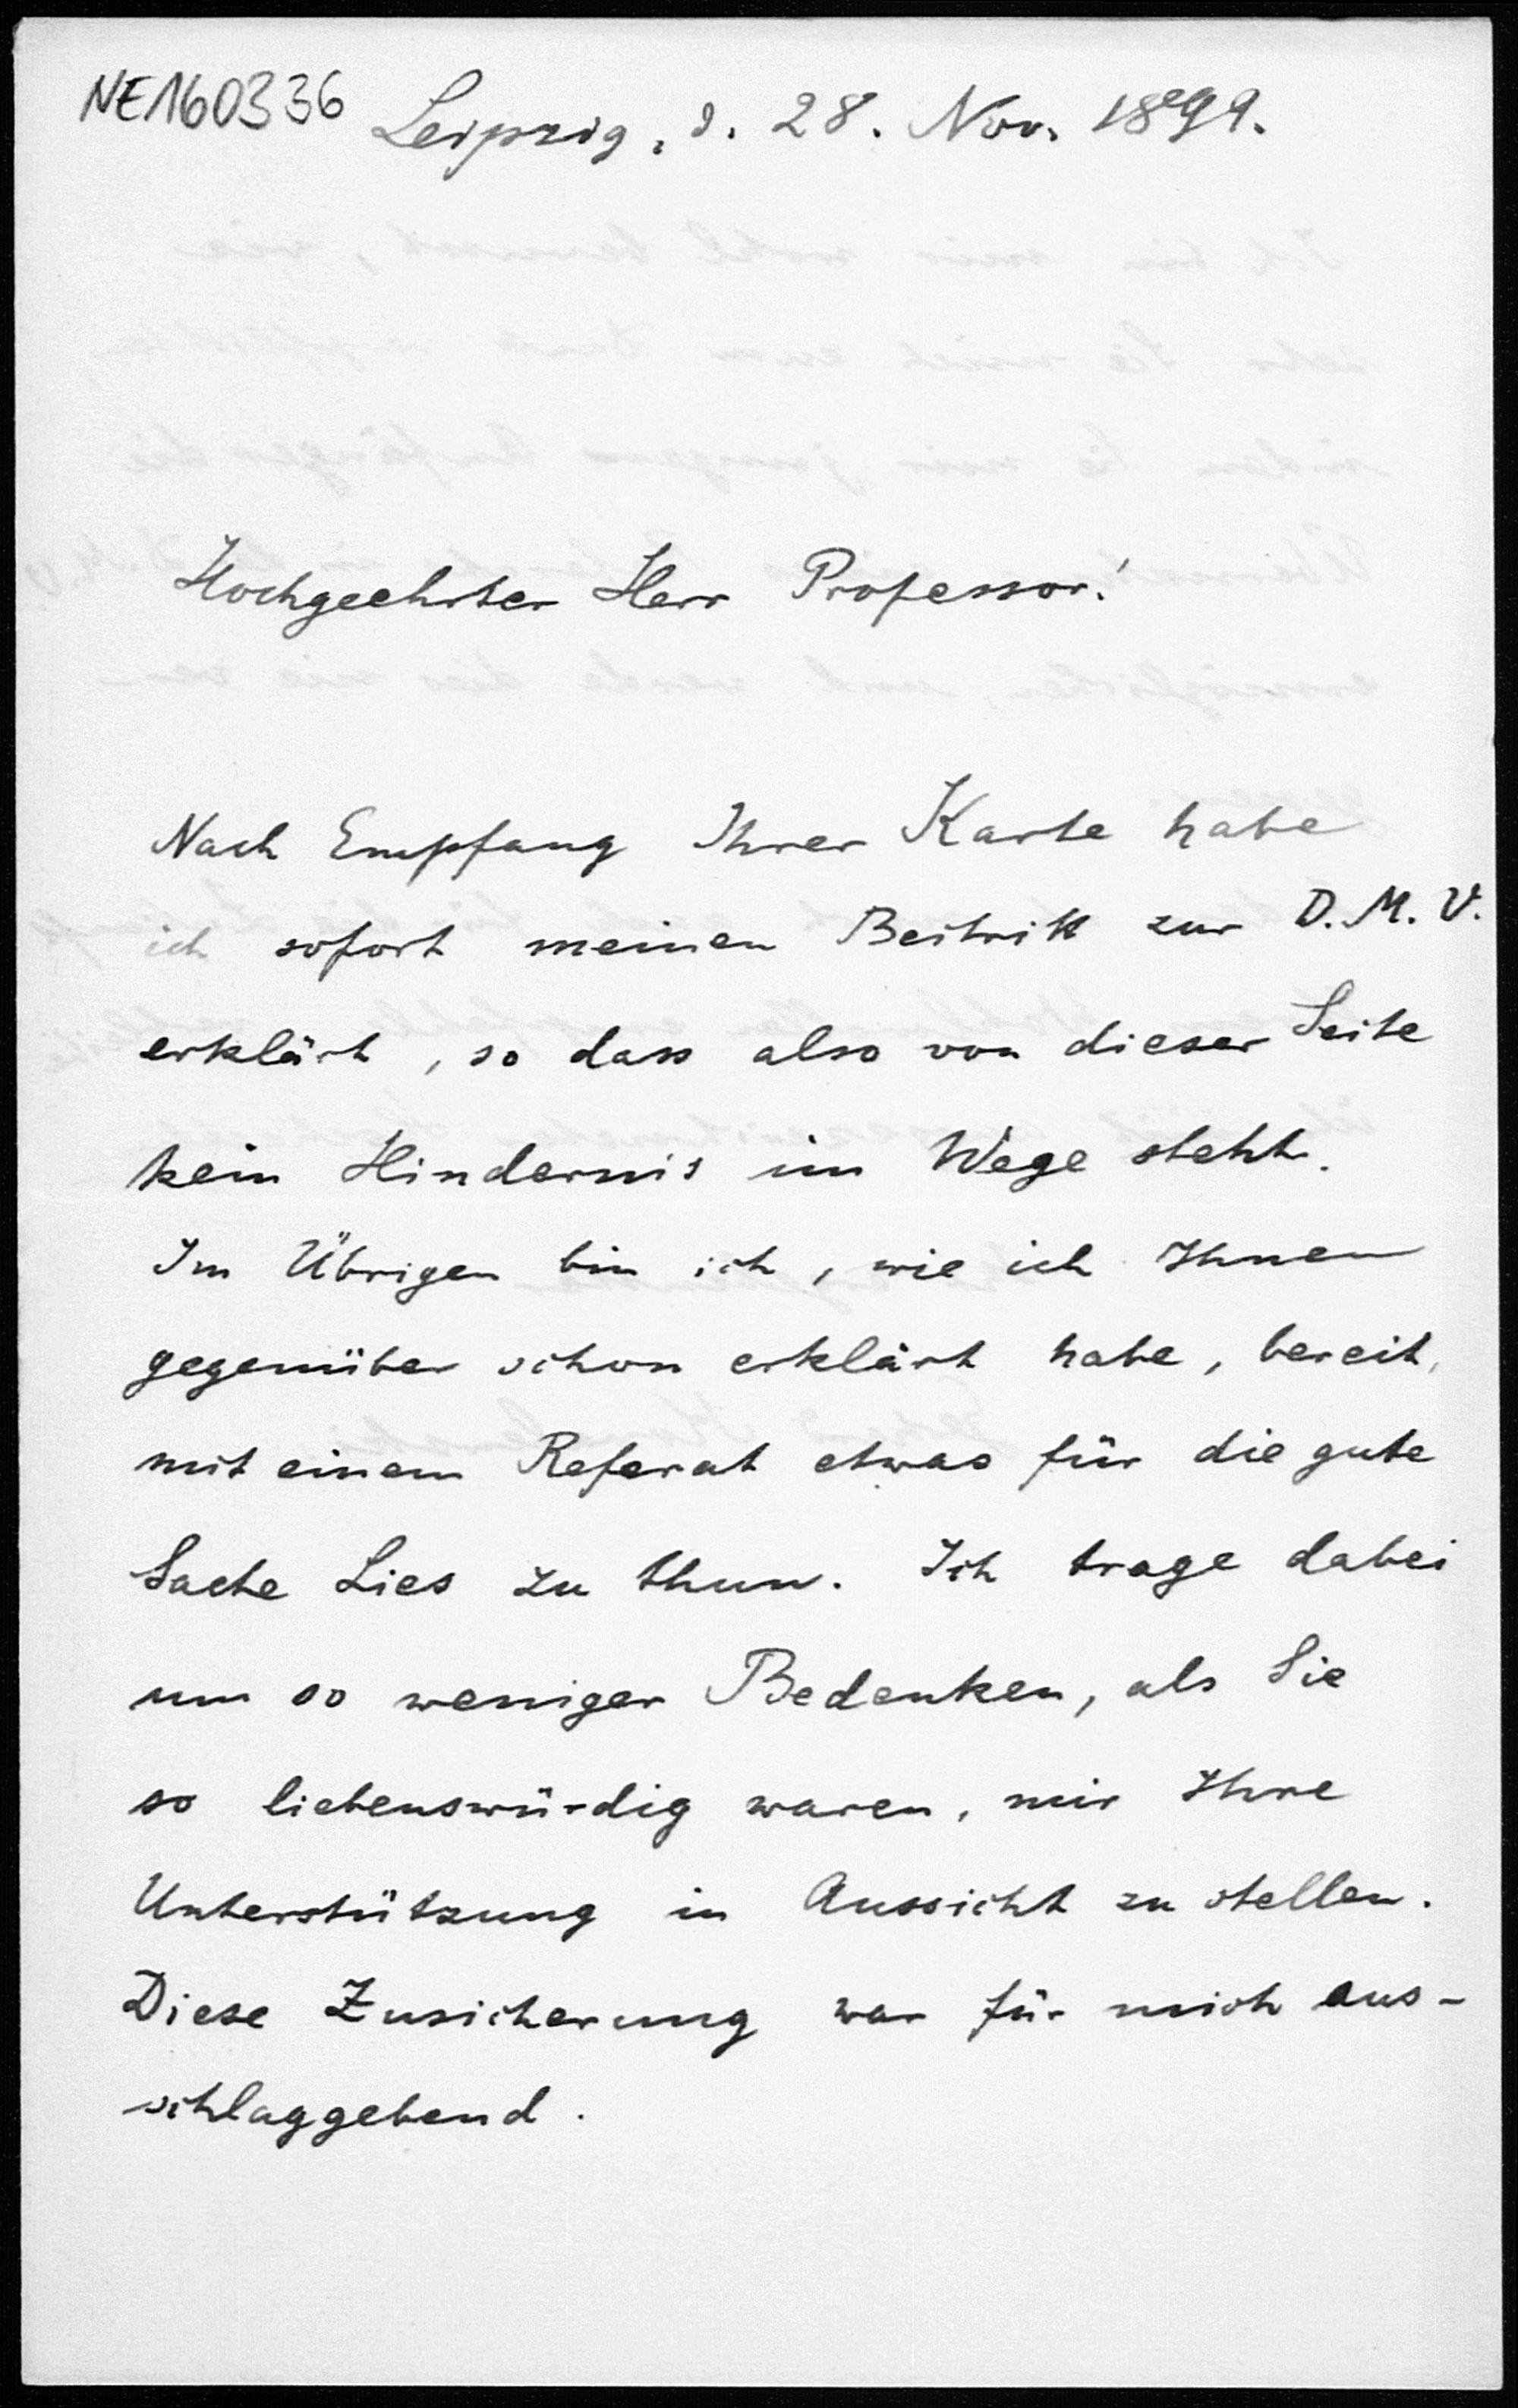 NE160336
Leipzig, d. 28. Nov. 1899.
Hochgeehrter Herr Professor!
Nach Empfang Ihrer Karte habe
ich sofort meinen Beitritt zur D. M. V.
erklärt, so dass also von dieser Seite
kein Hindernis im Wege steht.
Im Übrigen bin ich, wie ich Ihnen
gegenüber schon erklärt habe, bereit,
mit einem Referat etwas für die gute
Sache Lies zu thun. Ich trage dabei
um so weniger Bedenken, als Sie
so liebenswürdig waren, mir Ihre
Unterstützung in Aussicht zu stellen.
Diese Zusicherung war für mich aus-
schlaggebend.